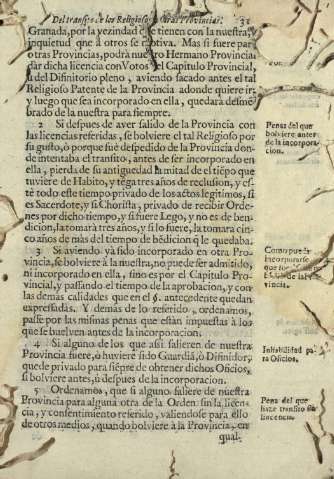 Del transito de los Religiosos à otras Provincias. 31
Granada, por la vezindad que tienen con la nuestra,
inquietud que à otros se motiva. Mas si fuere par
otras Provincias, podrà nuestro Hermano Provincia
dar dicha licencia con Votos Capitulo Provincial,
ù del Difinitorio pleno, aviendo sacado antes el tal
Religioso Patente de la Provincia adonde quiere ir,
y luego que sea incorporado en ella, quedarà desme
brado de la nuestra para siempre.
2 Si despues de aver salido de la Provincia con
las licencias referidas, se bolviere el tal Religioso por
su gusto, ò porque fuè despedido de la Provincia don
de intentaba el transito, antes de ser incorporado en
ella, pierda de su antiguedad la mitad de el tiẽpo que
tuviere de Habito, y tẽga tres años de reclusion, y es-
tè todo este tiempo privado de los actos legitimos, si
es Sacerdote; y si Chorista, privado de recibir Orde-
nes por dicho tiempo, y si fuere Lego, y no es de ben-
dicion, la tomarà tres años, y si lo fuere, la tomara cin
co años de mas del tiempo de bẽdicion q̃ le quedaba.
Penas del que
bolviere antes
de la incorpora-
cion.
3 Si aviendo yà sido incorporado en otra Pro-
vincia, se bolviere à la nuestra, no puede ser admitido,
ni incorporado en ella, sino es por el Capitulo Pro-
vincial, y passando el tiempo de la aprobacion, y con
las demàs calidades que en el §. antecedente quedan
expressadas. Y demàs de lo referido, ordenamos,
passe por las mismas penas que estàn impuestas à los
que se buelven antes de la incorporacion.
Como puede
incorporarse
vincia.
4 Si alguno de los que assi salieren de nuestra
Provincia fuere, ò huviere sido Guardiã, ò Difinidor,
quede privado para siẽpre de obtener dichos Oficios,
si bolviere antes, ò despues de la incorporacion.
Inhabilidad pa-
ra Oficios.
5 Ordenamos, que si alguno saliere de nuestra
Provincia para alguna otra de la Orden sin la licen-
cia, y consentimiento referido, valiendose para ello
de otros medios, quando bolviere à la Provincia, en
qual-
Pena del que
haze transito sin
licencia.